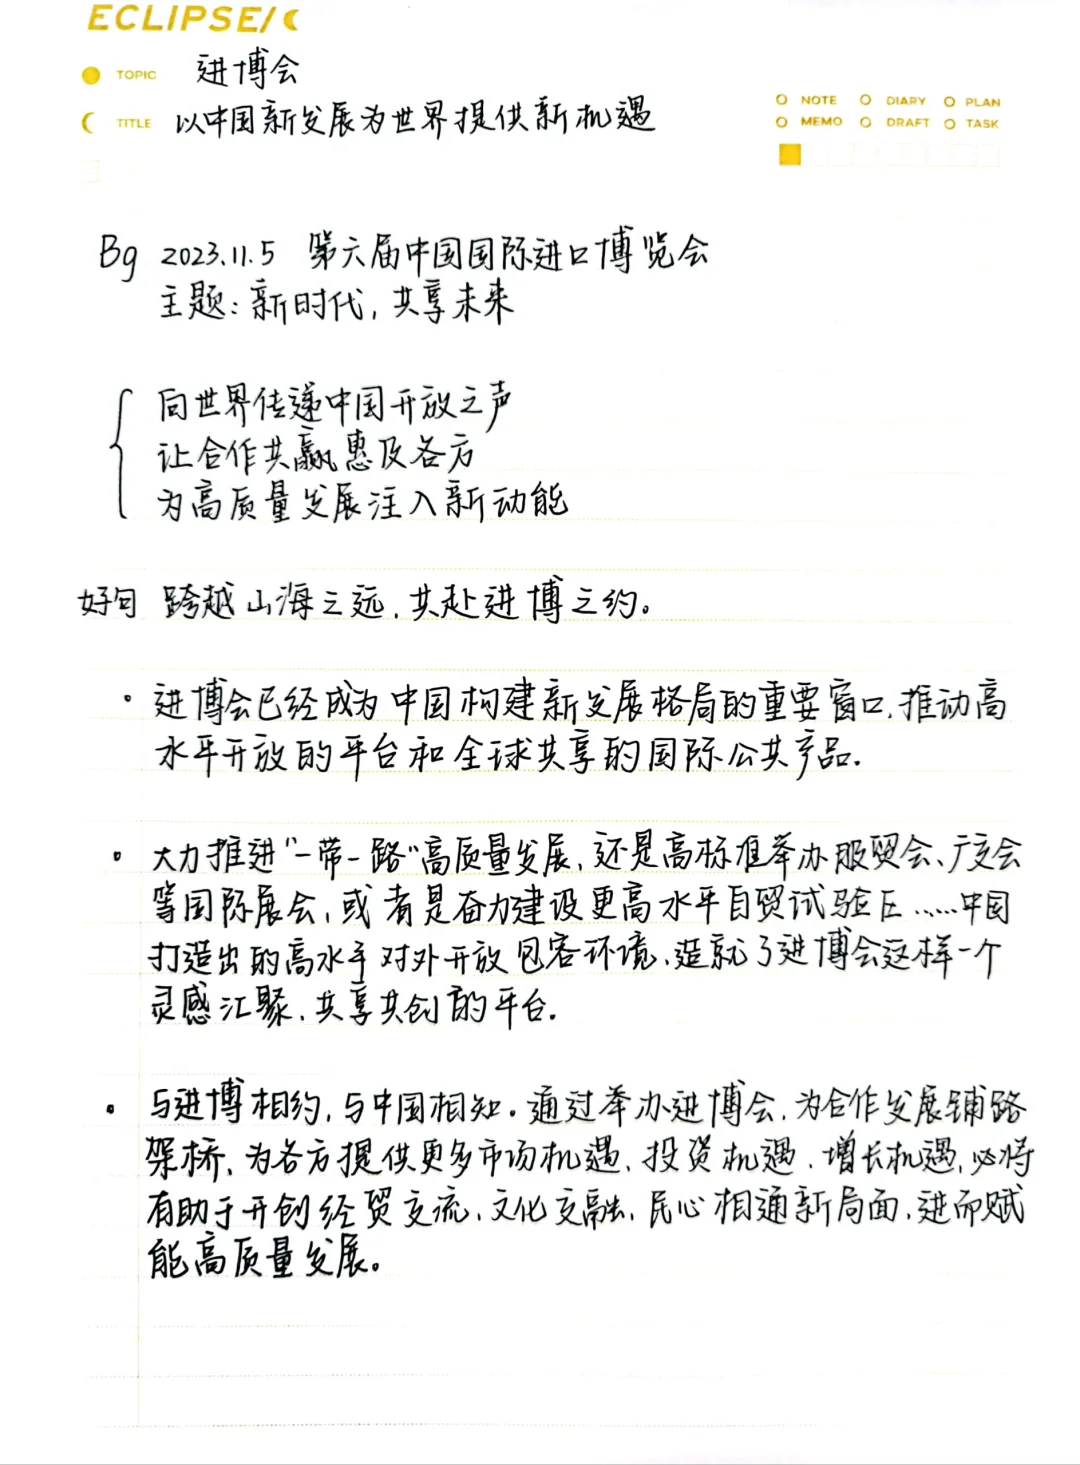 ECLIPSE/
TOPIC 进博会
TITLE 以中国新发展为世界提供新机遇
NOTE DIARY PLAN
MEMO DRAFT TASK
Bg 2023.11.5 第六届中国国际进口博览会
主题:新时代,共享未来
向世界传递中国开放之声
让合作共赢惠及各方
为高质量发展注入新动能
好句 跨越山海之远,共赴进博之约。
· 进博会已经成为中国构建新发展格局的重要窗口,推动高
水平开放的平台和全球共享的国际公共产品.
· 大力推进“一带一路”高质量发展,还是高标准举办服贸会、广交会
等国际展会,或者是奋力建设更高水平自贸试验区……中国
打造出的高水平对外开放包容环境,造就了进博会这样一个
灵感汇聚、共享共创的平台.
· 与进博相约,与中国相知。通过举办进博会,为合作发展铺路
架桥,为各方提供更多市场机遇、投资机遇、增长机遇,必将
有助于开创经贸交流、文化交融、民心相通新局面,进而赋
能高质量发展。